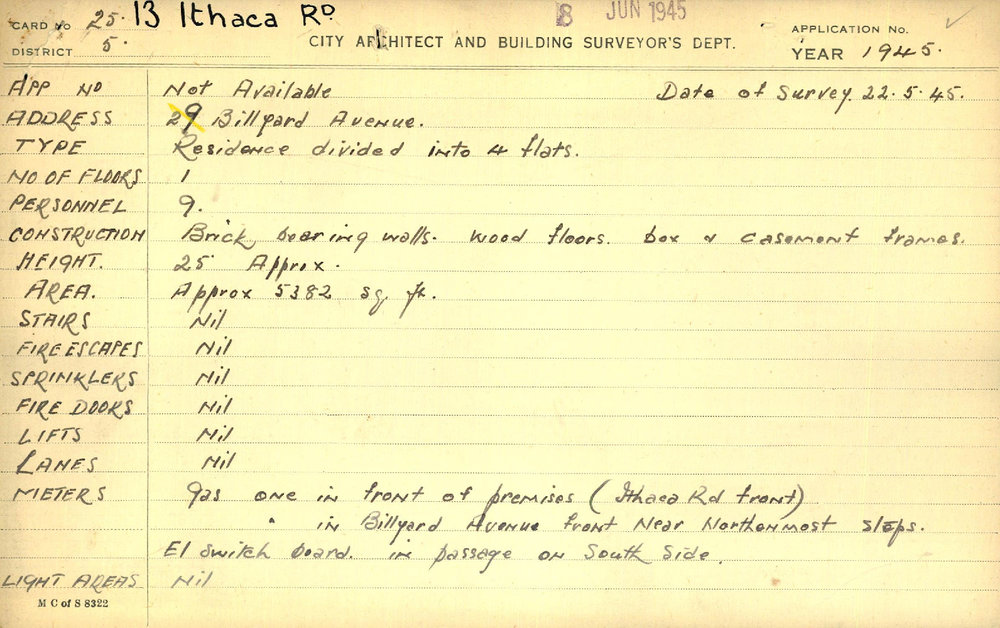 CARD No 25. 13 Ithaca RD 8 JUN 1945
DISTRICT 5. CITY ARCHITECT AND BUILDING SURVEYOR'S DEPT. APPLICATION No.
YEAR 1945.
APP NO Not Available Date of Survey. 22.5.45.
ADDRESS 29 Billyard Avenue.
TYPE Residence divided into 4 flats.
NO OF FLOORS 1
PERSONNEL 9.
CONSTRUCTION Brick bearing walls. Wood floors. box & casement frames.
HEIGHT. 25 Approx.
AREA. Approx 5382 sq ft.
STAIRS Nil
FIRE ESCAPES Nil
SPRINKLERS Nil
FIRE DOORS Nil
LIFTS Nil
LANES Nil
METERS Gas one in front of premises (Ithaca Rd front)
" in Billyard Avenue front Near Northernmost steps.
El switch board. in passage on South Side.
LIGHT AREAS Nil
M C of S 8322